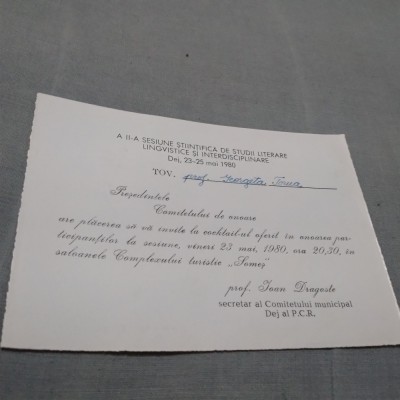 A II-A SESIUNE ȘTIINȚIFICĂ DE STUDII LITERARE
LINGVISTICE ȘI INTERDISCIPLINARE
Dej, 23-25 mai 1980
TOV. prof.
Președintele
Comitetului de onoare
are plăcerea să vă invite la cocktail-ul oferit în onoarea par-
ticipanților la sesiune, vineri 23 mai, 1980, ora 20,30, în
saloanele Complexului turistic „Someș”
prof. Ioan Dragoste
secretar al Comitetului municipal
Dej al P.C.R.